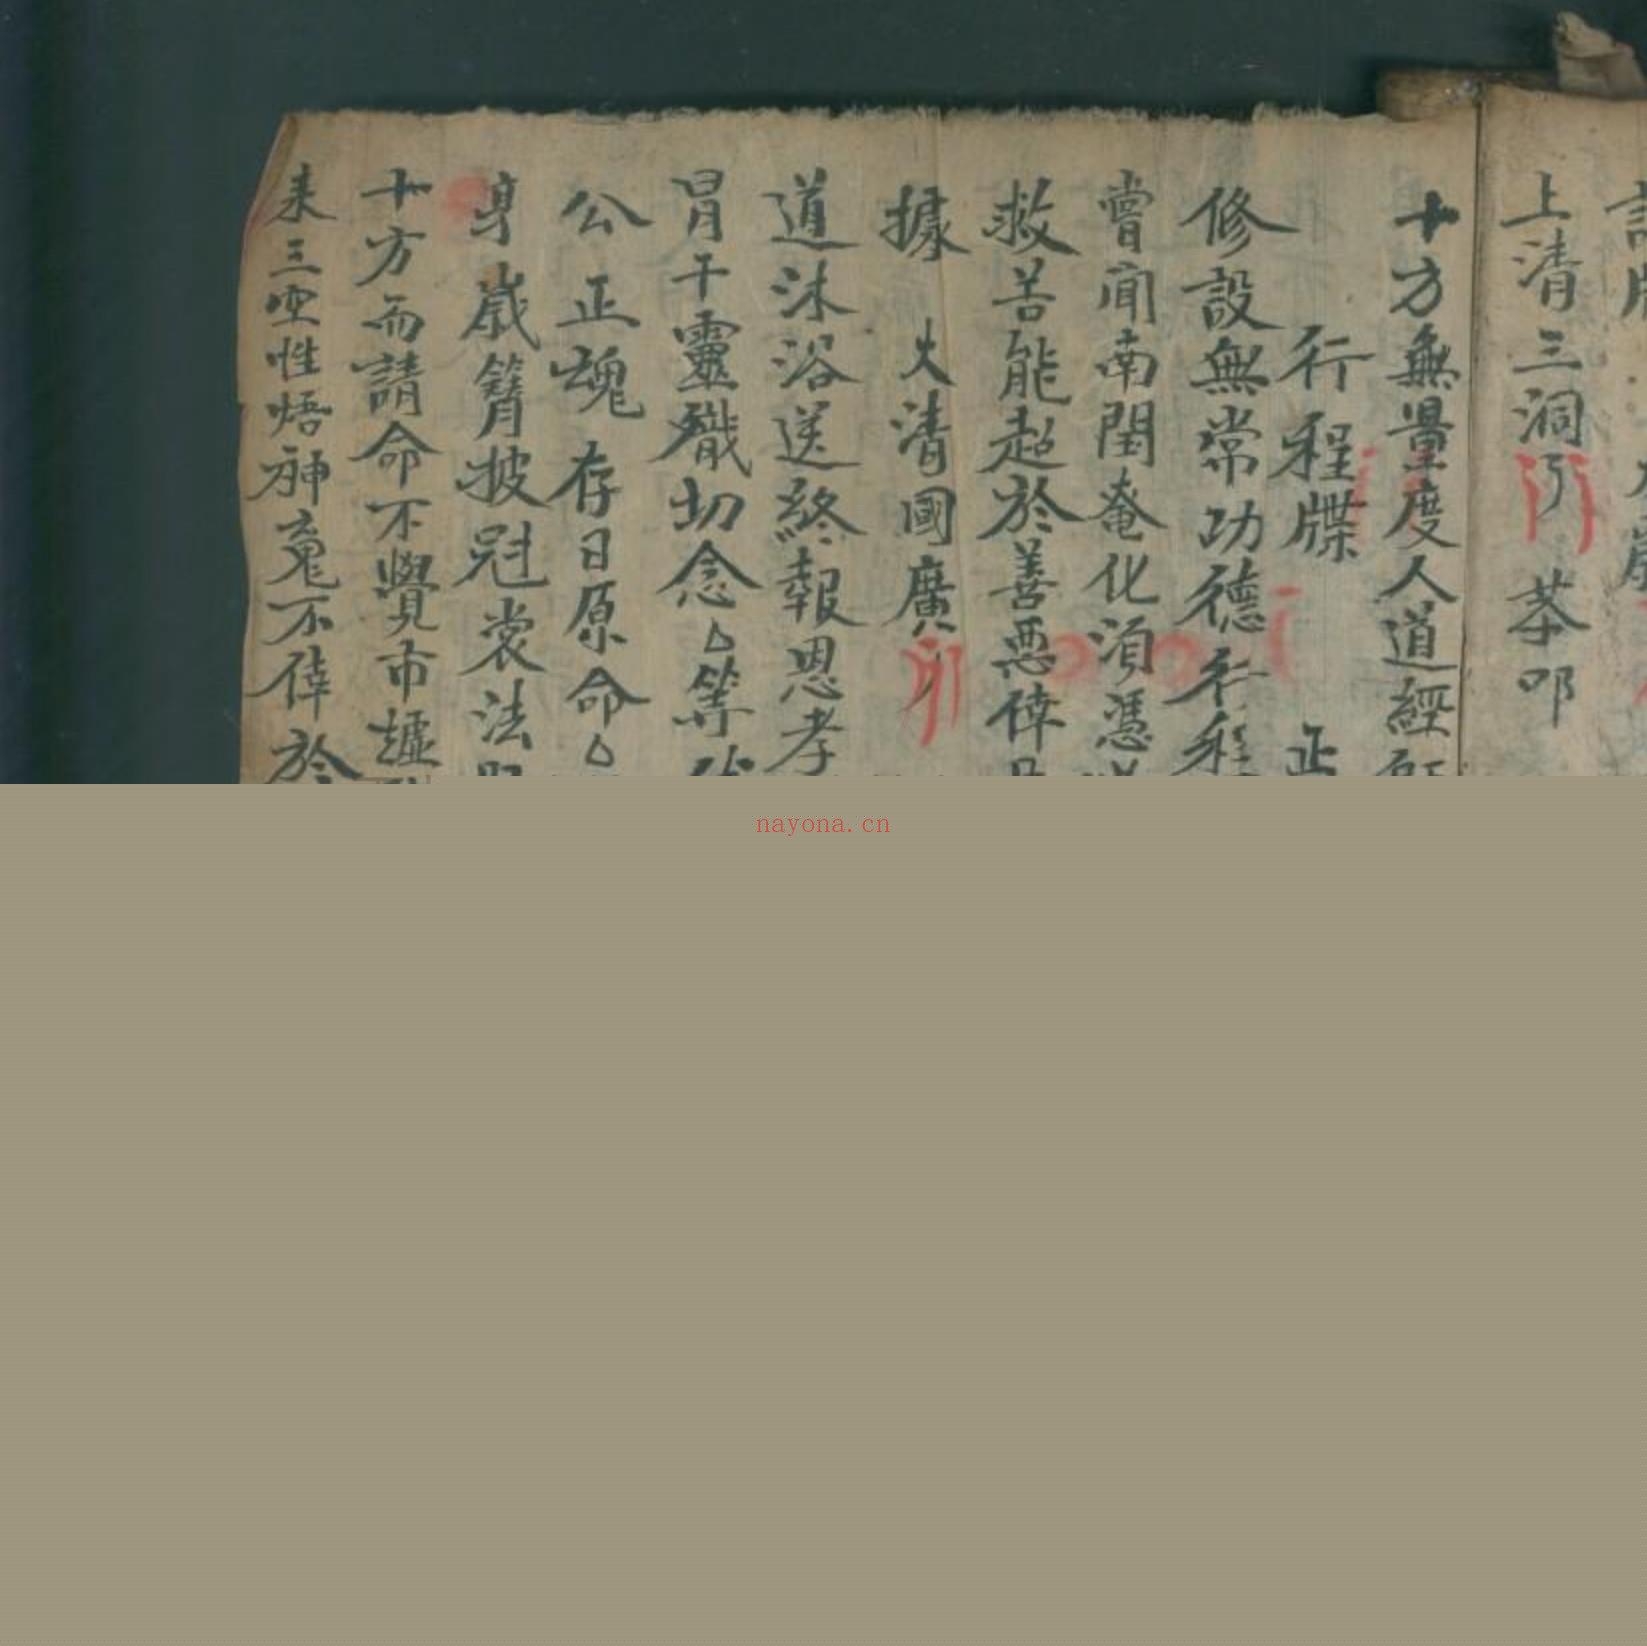 上清三洞 茶叩
十方無量度人道經
行程牒 正
修設無常功德行程
嘗聞南閻奄化須憑
救苦能超於善惡倖
據 大清國廣
道沐浴送終報恩孝
冒干靈職切念厶等
公正魂存日原命厶
身歲簮披冠裳法
十方而請命不覺市墟
来三空性悟神鬼不倖於
nayona.cn